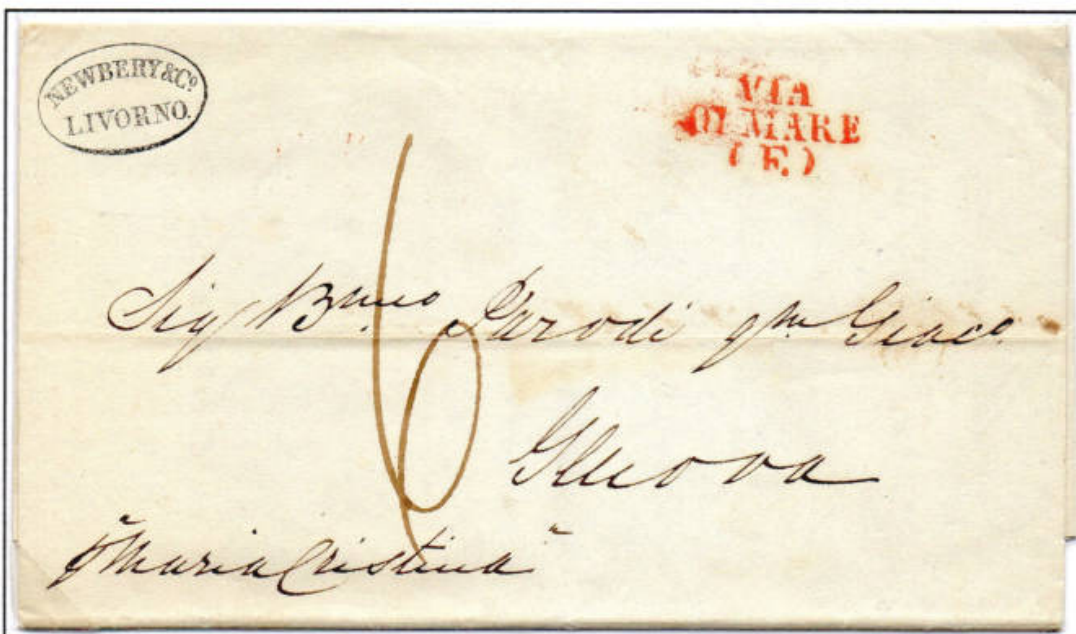 NEWBERY & Cº
LIVORNO.
VIA
DI MARE
(E.)
6
Sigr Bmeo Parodi qm Giacº
Genova
p "Maria Cristina"